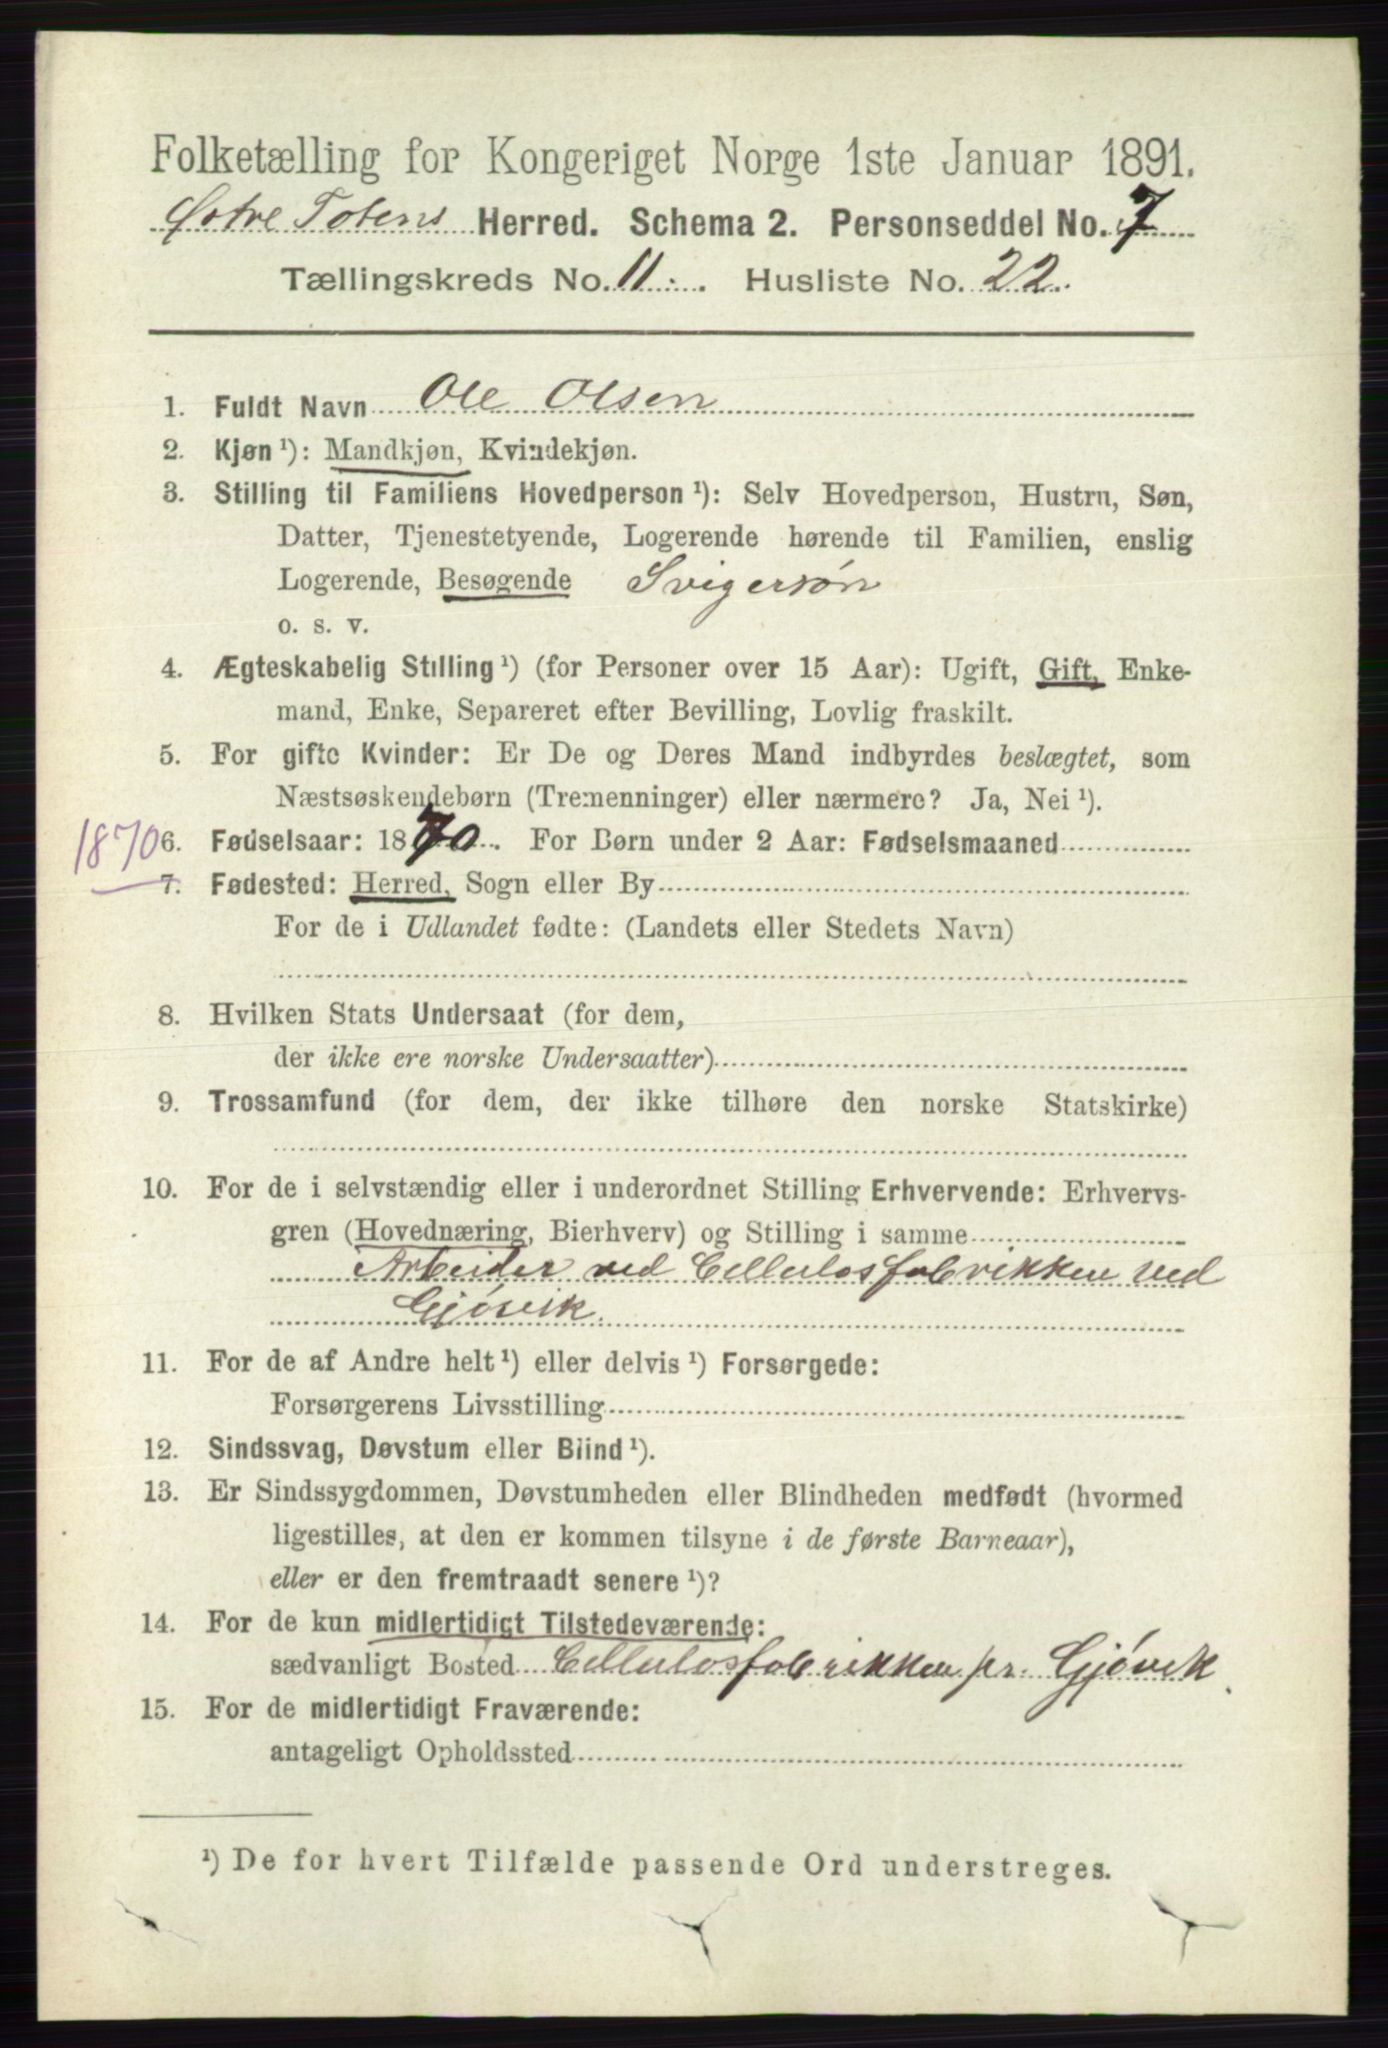 Folketælling for Kongeriget Norge 1ste Januar 1891.
Østre Totens Herred. Schema 2. Personseddel No. 7
Tællingskreds No. 11. Husliste No. 22.
1. Fuldt Navn Ole Olsen
2. Kjøn ¹): Mandkjøn, Kvindekjøn.
3. Stilling til Familiens Hovedperson ¹): Selv Hovedperson, Hustru, Søn,
Datter, Tjenestetyende, Logerende hørende til Familien, enslig
Logerende, Besøgende Svigersön
o. s. v.
4. Ægteskabelig Stilling ¹) (for Personer over 15 Aar): Ugift, Gift, Enke-
mand, Enke, Separeret efter Bevilling, Lovlig fraskilt.
5. For gifte Kvinder: Er De og Deres Mand indbyrdes beslægtet, som
Næstsøskendebørn (Tremenninger) eller nærmere? Ja, Nei ¹).
1870 6. Fødselsaar: 1870. For Børn under 2 Aar: Fødselsmaaned
7. Fødested: Herred, Sogn eller By
For de i Udlandet fødte: (Landets eller Stedets Navn)
8. Hvilken Stats Undersaat (for dem,
der ikke ere norske Undersaatter)
9. Trossamfund (for dem, der ikke tilhøre den norske Statskirke)
10. For de i selvstændig eller i underordnet Stilling Erhvervende: Erhvervs-
gren (Hovednæring, Bierhverv) og Stilling i samme
Arbeider ved Cellulosfabrikken ved
Gjövik.
11. For de af Andre helt ¹) eller delvis ¹) Forsørgede:
Forsørgerens Livsstilling
12. Sindssvag, Døvstum eller Blind ¹).
13. Er Sindssygdommen, Døvstumheden eller Blindheden medfødt (hvormed
ligestilles, at den er kommen tilsyne i de første Barneaar),
eller er den fremtraadt senere ¹)?
14. For de kun midlertidigt Tilstedeværende:
sædvanligt Bosted Cellulosfabrikken pr. Gjövik.
15. For de midlertidigt Fraværende:
antageligt Opholdssted
¹) De for hvert Tilfælde passende Ord understreges.